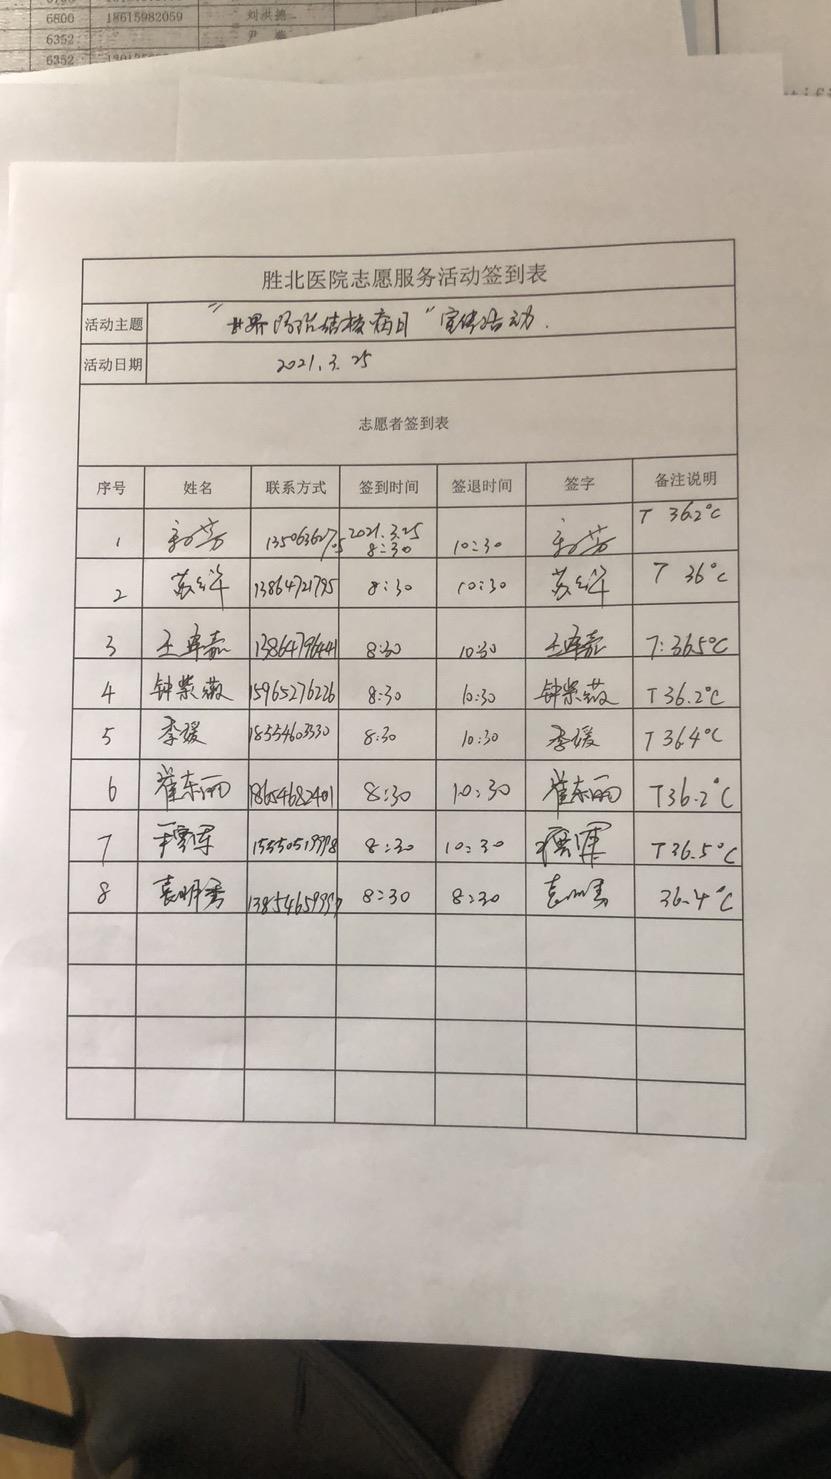 6800 18615982059 刘洪德
6352 尹
6352
胜北医院志愿服务活动签到表
活动主题 "世界防治结核病日"宣传活动.
活动日期 2021.3.25
志愿者签到表
序号 姓名 联系方式 签到时间 签退时间 签字 备注说明
1 芳 13506362705 2021.3.25 8:30 10:30 芳 T 36.2°C
2 苏红 13864721795 8:30 10:30 苏红 T 36°C
3 王 13864796441 8:30 10:30 王 T: 36.5°C
4 钟紫薇 15965276226 8:30 10:30 钟紫薇 T 36.2°C
5 季媛 18554603330 8:30 10:30 季媛 T 36.4°C
6 崔东雨 18654682401 8:30 10:30 崔东雨 T 36.2°C
7 军 15550519998 8:30 10:30 军 T 36.5°C
8 袁明秀 8:30 8:30 袁明秀 36.4°C